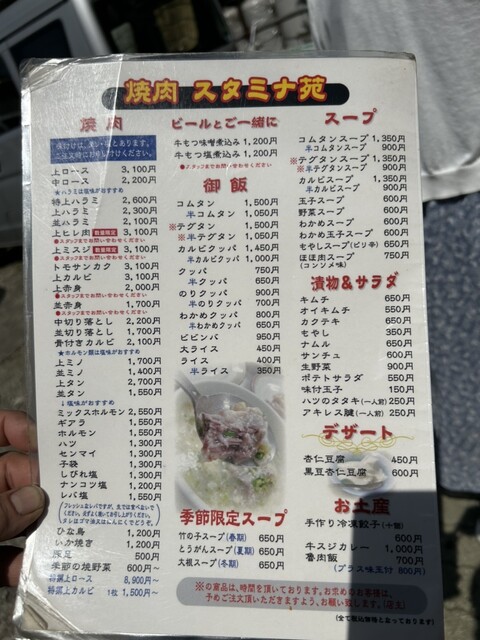 焼肉 スタミナ苑
焼肉
ご注文時にお申し付けください。
上ロース 3,100円
中ロース 2,200円
★ハラミは塩味がおすすめ
特上ハラミ 2,600円
上ハラミ 2,300円
並ハラミ 2,100円
上ヒレ肉 数量限定 3,100円
●スタッフまでお問い合わせください
上ミスジ 数量限定 3,100円
●スタッフまでお問い合わせください
トモサンカク 3,100円
上カルビ 3,100円
上赤身 2,000円
●スタッフまでお問い合わせください
並赤身 1,700円
●スタッフまでお問い合わせください
中切り落とし 2,200円
並切り落とし 1,700円
骨付きカルビ 2,100円
★ホルモン類は塩味がおすすめ
上ミノ 1,700円
並ミノ 1,400円
上タン 2,700円
並タン 1,550円
↓塩味がおすすめ
ミックスホルモン 2,550円
ギアラ 1,550円
ホルモン 1,550円
ハツ 1,300円
センマイ 1,300円
子袋 1,300円
しびれ塩 1,300円
ナンコツ塩 1,200円
レバ塩 1,550円
フレッシュなレバですが、生では食べないで
ください。必ずよく焼いてお召し上がりください。
タレはゴマ油又はにんにくでどうぞ。
ひな鳥 1,200円
いか焼き 1,200円
豚足 500円
季節の焼野菜 600円~
特選上ロース 8,900円~
特選上カルビ 1枚 1,500円~
ビールとご一緒に
牛もつ味噌煮込み 1,200円
牛もつ塩煮込み 1,200円
●スタッフまでお問い合わせください
御飯
コムタン 1,500円
半コムタン 1,050円
※テグタン 1,500円
※半テグタン 1,050円
カルビクッパ 1,450円
半カルビクッパ 1,000円
クッパ 750円
半クッパ 650円
のりクッパ 900円
半のりクッパ 700円
わかめクッパ 800円
半わかめクッパ 650円
ビビンバ 950円
大ライス 450円
ライス 400円
半ライス 350円
季節限定スープ
竹の子スープ(春期) 650円
とうがんスープ(夏期) 650円
大根スープ(冬期) 650円
スープ
コムタンスープ 1,350円
半コムタンスープ 900円
※テグタンスープ 1,350円
※半テグタンスープ 900円
カルビスープ 1,350円
半カルビスープ 900円
玉子スープ 600円
野菜スープ 600円
わかめスープ 600円
わかめ玉子スープ 600円
もやしスープ(ピリ辛) 650円
ほほ肉スープ 750円
(コンソメ味)
漬物&サラダ
キムチ 650円
オイキムチ 550円
カクテキ 650円
もやし 350円
ナムル 650円
サンチュ 600円
生野菜 900円
ポテトサラダ 550円
味付玉子 150円
ハツのタタキ(一人前) 250円
アキレス腱(一人前) 250円
デザート
杏仁豆腐 450円
黒豆杏仁豆腐 600円
お土産
手作り冷凍餃子(十個)
700円
牛スジカレー 1,000円
魯肉飯 700円
(プラス味玉付 800円)
※の商品は、時間を頂いております。お求めのお客様は、
予めご注文頂いておきますよう、お願い致します。(店主)
(全て税込価格となっております)